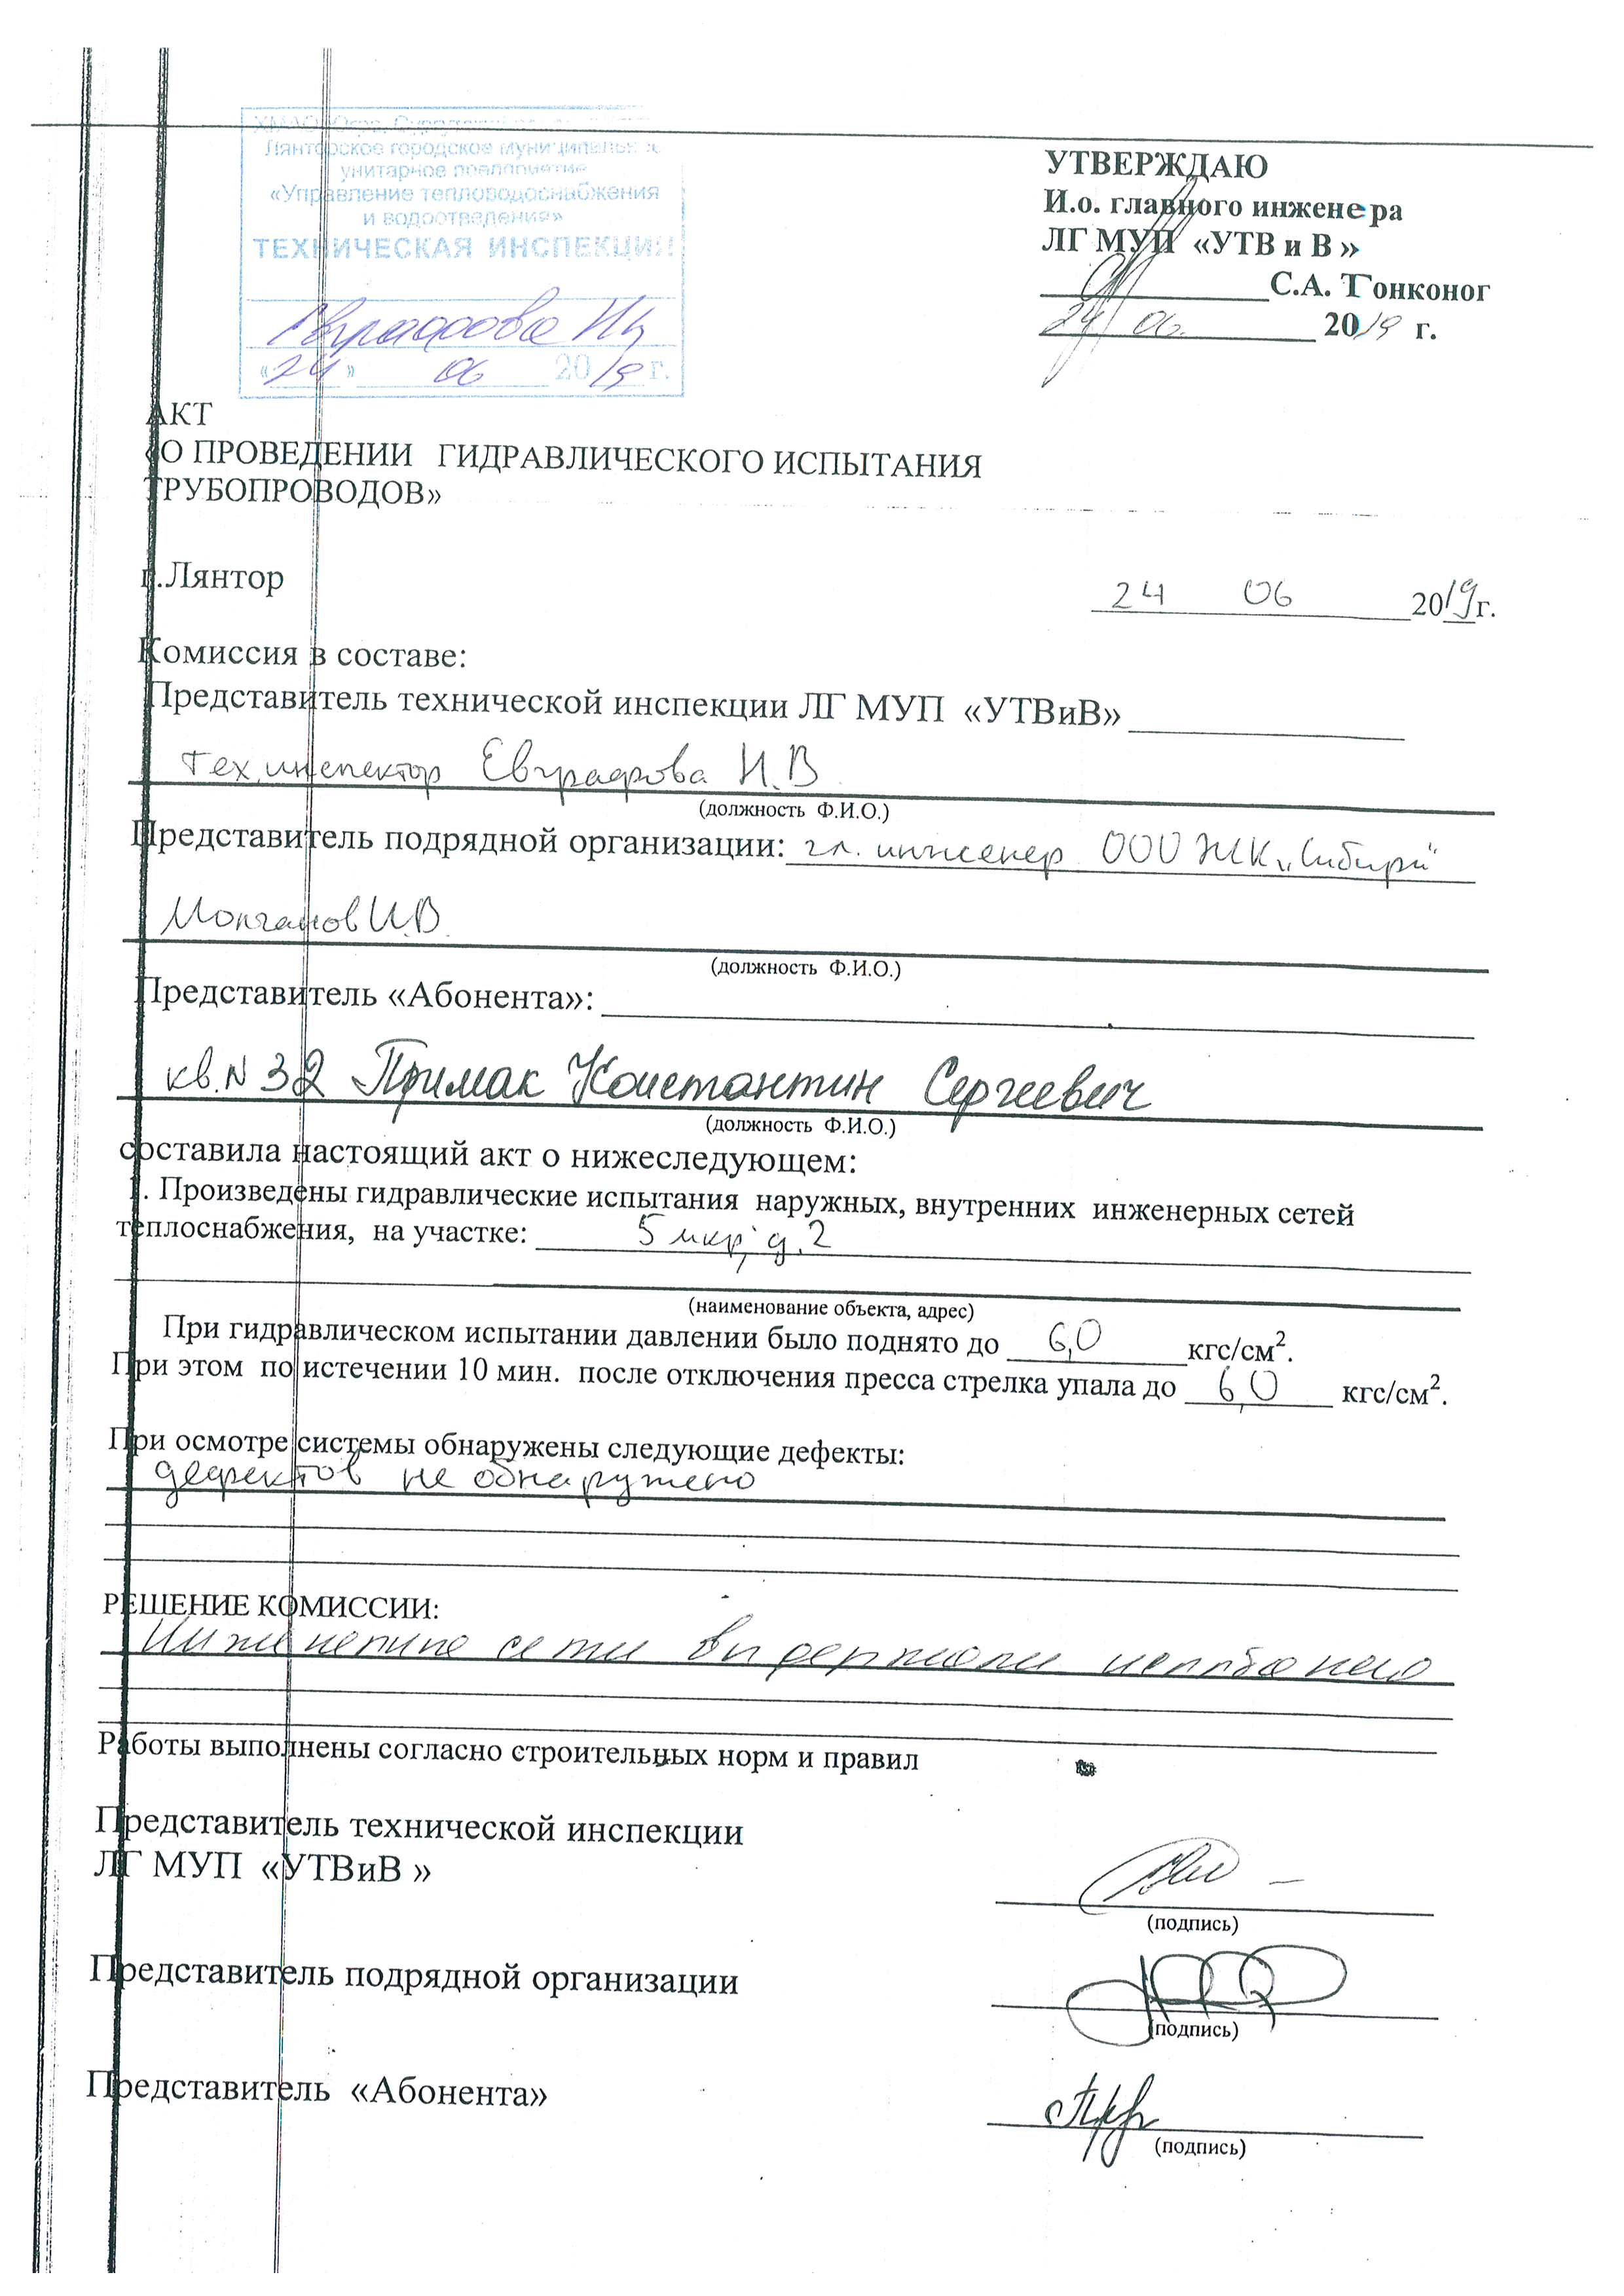 Лянторское городское муниципальное
унитарное предприятие
«Управление тепловодоснабжения
и водоотведения»
ТЕХНИЧЕСКАЯ ИНСПЕКЦИЯ
Евграфова
«24» 06 2019 г.
УТВЕРЖДАЮ
И.о. главного инженера
ЛГ МУП «УТВ и В »
С.А. Тонконог
24 06. 2019 г.
АКТ
«О ПРОВЕДЕНИИ ГИДРАВЛИЧЕСКОГО ИСПЫТАНИЯ
ТРУБОПРОВОДОВ»
г.Лянтор
24 06 2019г.
Комиссия в составе:
Представитель технической инспекции ЛГ МУП «УТВиВ»
Тех.инспектор Евграфова Н.В
(должность Ф.И.О.)
Представитель подрядной организации: гл. инженер ООО ЖК „Сибири"
Молчанов И.В.
(должность Ф.И.О.)
Представитель «Абонента»:
кв.N 32 Примак Константин Сергеевич
(должность Ф.И.О.)
составила настоящий акт о нижеследующем:
1. Произведены гидравлические испытания наружных, внутренних инженерных сетей
теплоснабжения, на участке: 5 мкр, д.2
(наименование объекта, адрес)
При гидравлическом испытании давлении было поднято до 6,0 кгс/см².
При этом по истечении 10 мин. после отключения пресса стрелка упала до 6,0 кгс/см².
При осмотре системы обнаружены следующие дефекты:
дефектов не обнаружено
РЕШЕНИЕ КОМИССИИ:
сети выдержали
Работы выполнены согласно строительных норм и правил
Представитель технической инспекции
ЛГ МУП «УТВиВ »
(подпись)
Представитель подрядной организации
(подпись)
Представитель «Абонента»
(подпись)